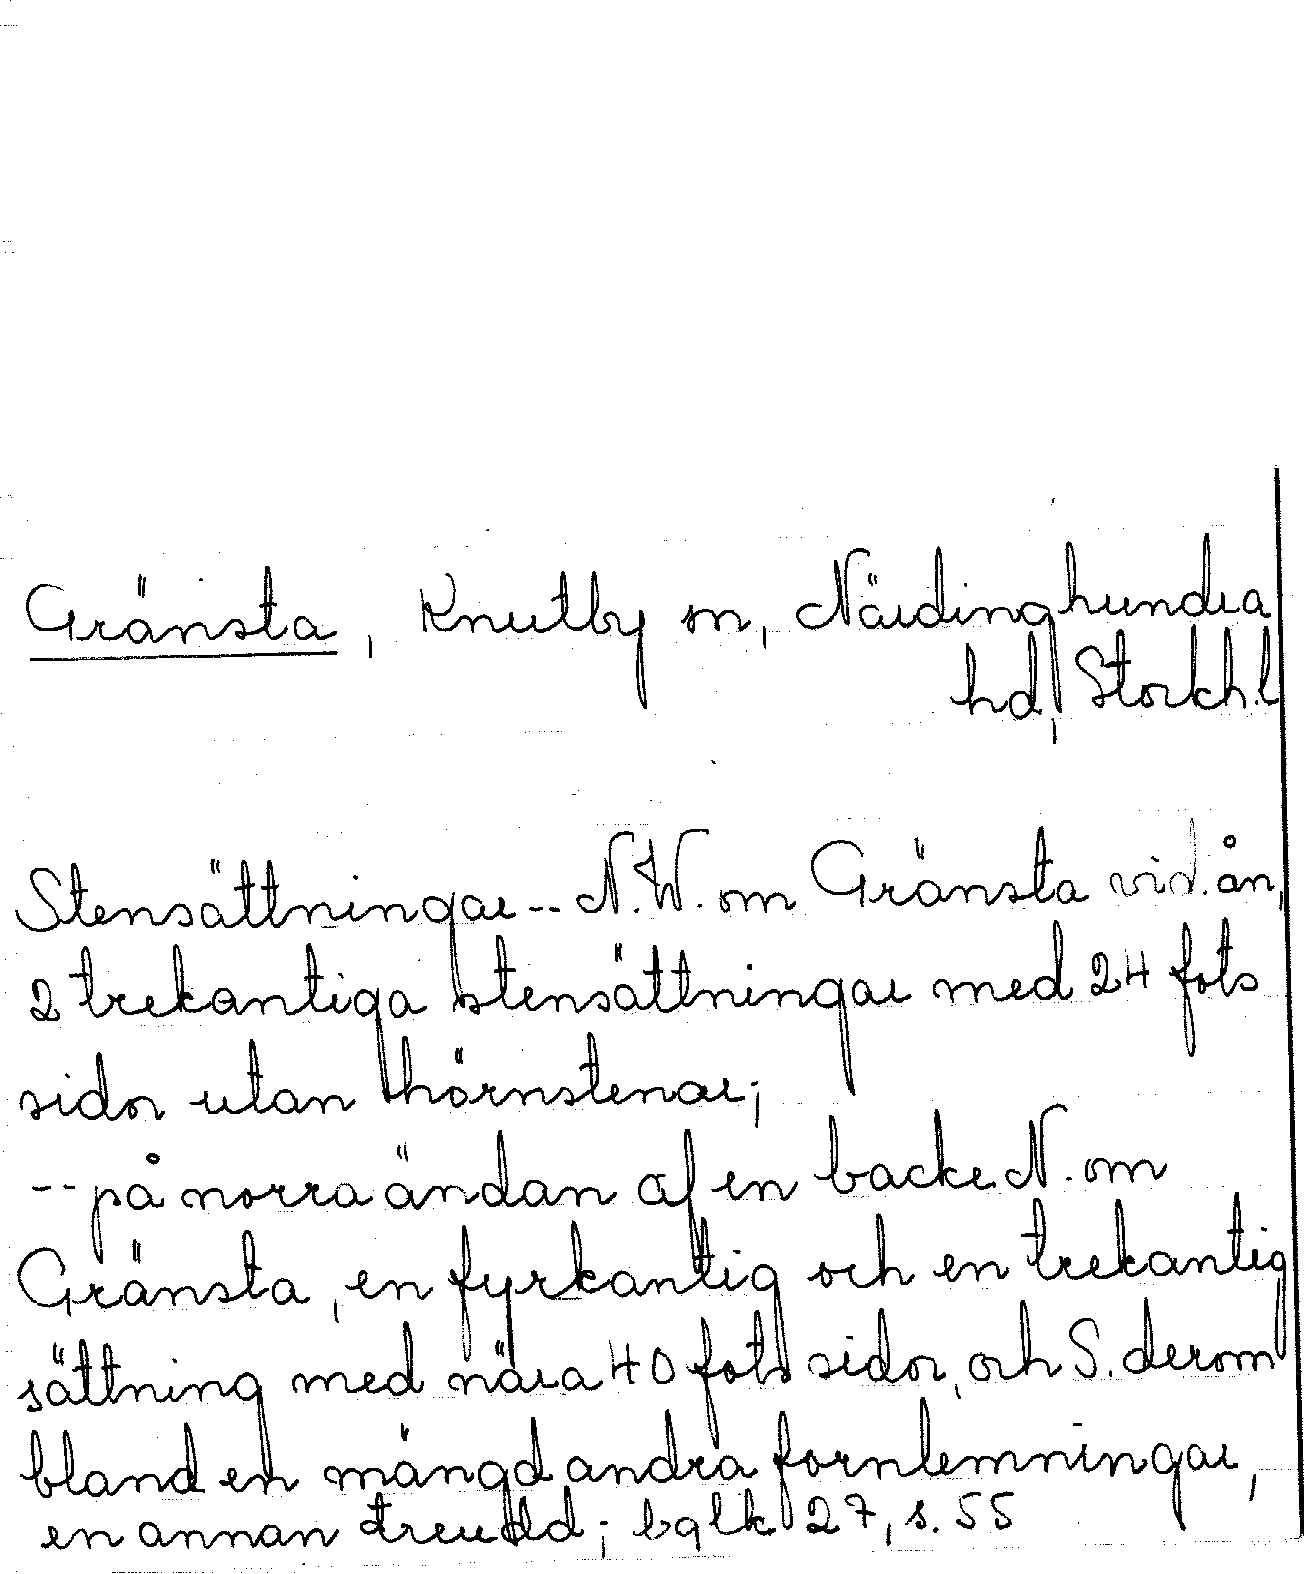 Gränsta, Knutby sn, Närdinghundra
hd, Stockh.l
Stensättningar -- N.W. om Gränsta vid ån,
2 trekantiga stensättningar med 24 fots
sidor utan hörnstenar;
-- på norra ändan af en backe N. om
Gränsta, en fyrkantig och en trekantig
sättning med nära 40 fots sidor, och S. derom
bland en mängd andra fornlemningar,
en annan treudd; bglk 27, s. 55